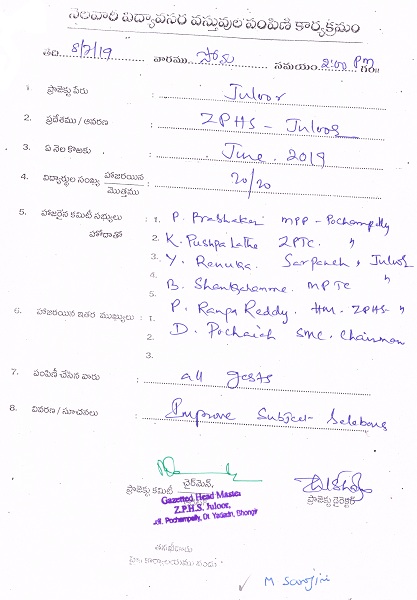 నెలవారి విద్యావసర వస్తువుల పంపిణి కార్యక్రమం
తేది. 8/7/19 వారము సోమ సమయం. 2:00 PM గం॥
1 ప్రాజెక్టు పేరు : Juloor
2. ప్రదేశము / ఆవరణ : ZPHS - Juloor
3. ఏ నెల కొఱకు : June. 2019
4. విద్యార్థుల సంఖ్య హాజరయిన / మొత్తము : 20/20
5. హాజరైన కమిటీ సభ్యులు : 1. P. Prabhakar MPP - Pochampally
హోదాతో 2. K. Pushpa Latha ZPTC. "
3. Y. Renuka. Sarpanch, Juloor
4. B. Shankaramma. MPTC "
5.
6. హాజరయిన ఇతర ముఖ్యులు : 1. P. Ranga Reddy. HM. ZPHS- "
2. D. Pochaiah SMC. Chairman
3.
7. పంపిణీ చేసిన వారు : all gests
8. వివరణ / సూచనలు : Improve Subject-
ప్రాజెక్టు కమిటీ చైర్‌మెన్, ప్రాజెక్టు డైరెక్టర్
Gazetted Head Master
Z.P.H.S. Juloor,
Pochampally, Dt. Yadadri, Bhongir
M Sarojini